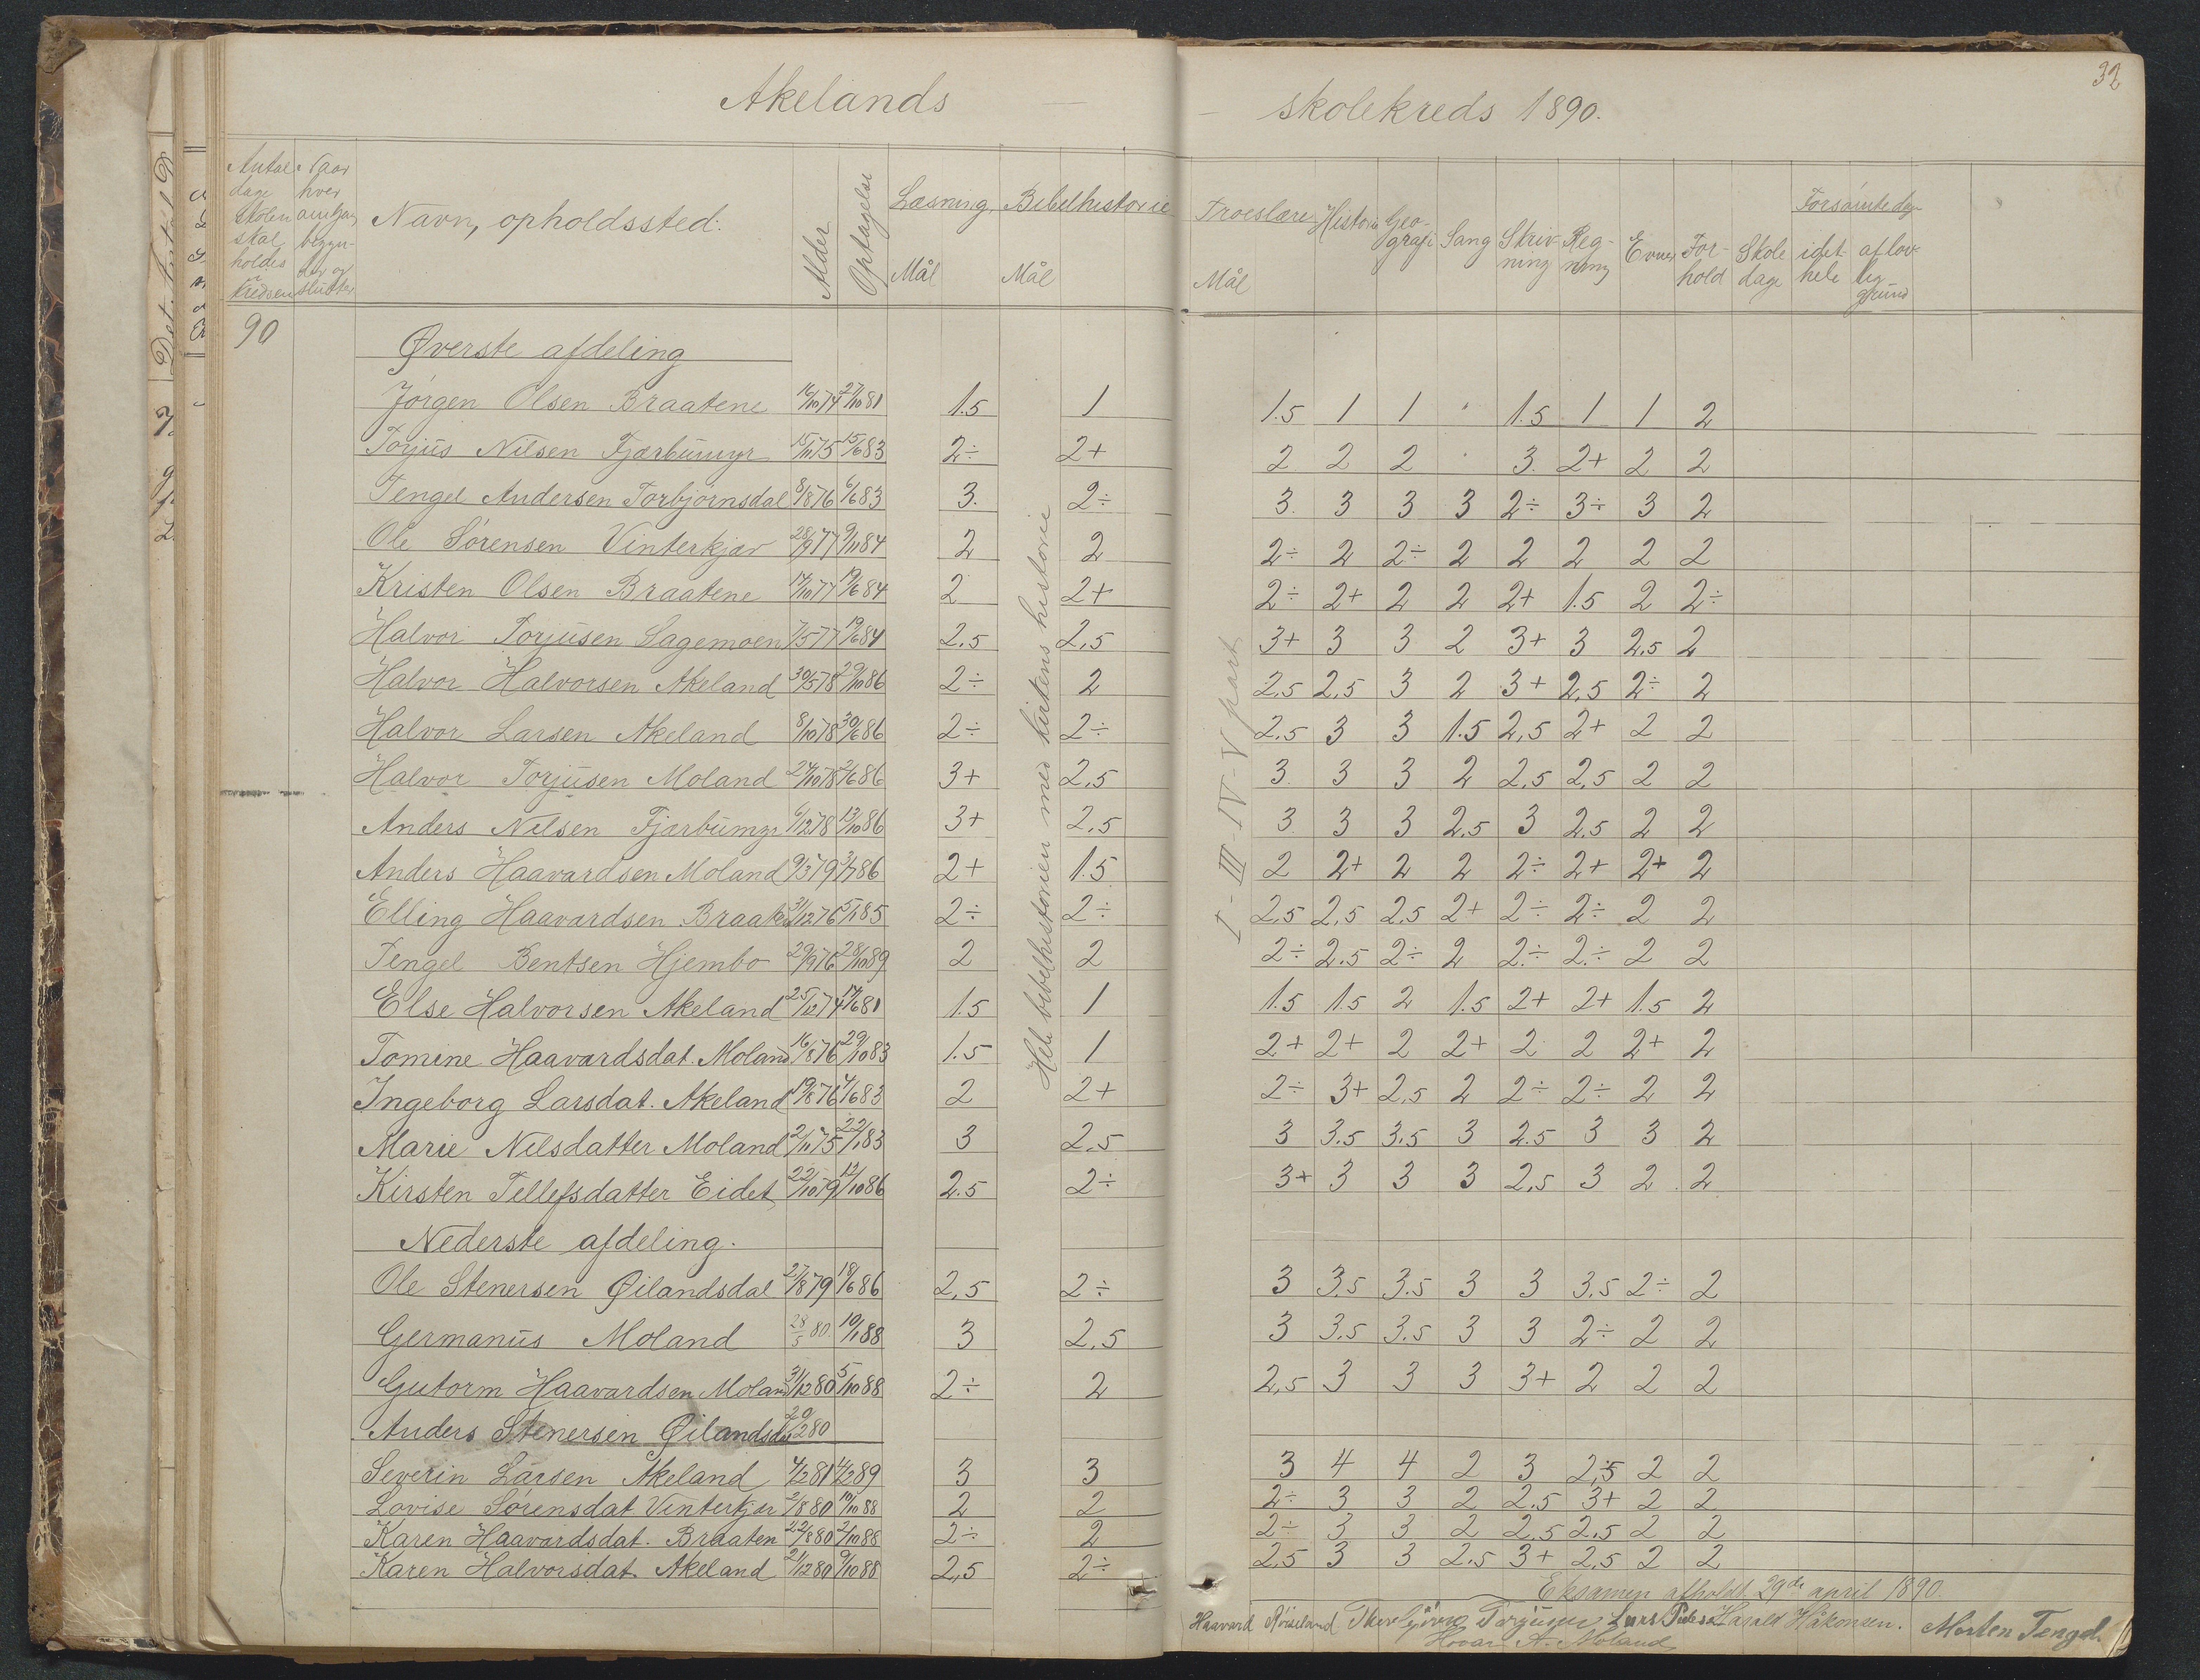 Akelands — skolekreds 1890.
32
Antal dage skolen skal holdes i kredsen
Naar hver omgang begynder og slutter
Navn, opholdssted:
Alder
Optagelse
Læsning Mål
Bibelhistorie Mål
Troeslære Mål
Historie
Geografi
Sang
Skrivning
Regning
Evner
Forhold
Skole dage
Forsømte dage
idet hele
aflovlig grund
90
Øverste afdeling
Jørgen Olsen Braatene 16/10 74 27/10 81 1.5 1 1.5 1 1 1.5 1 1 2
Torjus Nilsen Fjærbumyr 15/11 75 15/6 83 2÷ 2+ 2 2 2 3. 2+ 2 2
Tengel Andersen Torbjørnsdal 8/8 76 6/6 83 3. 2÷ 3. 3 3 3 2÷ 3÷ 3 2
Ole Sørensen Vinterkjær 28/9 77 9/11 84 2 2 2÷ 2 2÷ 2 2 2 2 2
Kristen Olsen Braatene 14/10 77 19/6 84 2 2+ 2÷ 2+ 2 2 2+ 1.5 2 2÷
Halvor Torjusen Sagemoen 7/5 77 19/6 84 2.5 2.5 3+ 3 3 2 3+ 3 2.5 2
Halvor Halvorsen Akeland 30/5 78 29/10 86 2÷ 2 2.5 2.5 3 2 3+ 2.5 2÷ 2
Halvor Larsen Akeland 8/10 78 30/6 86 2÷ 2÷ 2.5 3 3 1.5 2.5 2+ 2 2
Halvor Torjusen Moland 24/10 78 2/6 86 3+ 2.5 3. 3 3 2 2.5 2.5 2 2
Anders Nilsen Fjærbumyr 6/12 78 13/10 86 3+ 2.5 3. 3 3 2.5 3 2.5 2 2
Anders Haavardsen Moland 9/3 79 3/7 86 2+ 1.5 2 2+ 2 2 2÷ 2+ 2+ 2
Elling Haavardsen Braaten 31/12 76 5/1 85 2÷ 2÷ 2.5 2.5 2.5 2+ 2÷ 2÷ 2 2
Tengel Bentsen Hjembo 29/9 76 28/10 89 2 2 2÷ 2.5 2÷ 2 2÷ 2÷ 2 2
Else Halvorsen Akeland 25/12 74 17/6 81 1.5 1 1.5 1.5 2 1.5 2+ 2+ 1.5 2
Tomine Haavardsdat. Moland 16/8 76 29/10 83 1.5 1 2+ 2+ 2 2+ 2 2 2+ 2
Ingeborg Larsdat. Akeland 19/8 76 4/6 83 2 2+ 2÷ 3+ 2.5 2 2÷ 2÷ 2 2
Marie Nilsdatter Moland 2/11 75 22/1 83 3 2.5 3 3.5 3.5 3 2.5 3 3 2
Kirsten Tellefsdatter Eidet 22/10 79 12/10 86 2.5 2÷ 3+ 3 3 3 2.5 3 2 2
Hele bibelhistorien med kirkens historie
I - III - IV - V part
Nederste afdeling.
Ole Stenersen Øilandsdal 27/8 79 18/6 86 2.5 2÷ 3 3.5 3.5 3 3 3.5 2÷ 2
Germanus Moland 28/5 80. 10/1 88 3 2.5 3 3.5 3.5 3 3 2÷ 2 2
Gutorm Haavardsen Moland 31/12 80 5/10 88 2÷ 2 2.5 3 3 3 3+ 2 2 2
Anders Stenersen Øilandsdal 20/12 80
Severin Larsen Akeland 4/2 81 4/2 89 3 3 3 4 4 2 3 2.5 2 2
Lovise Sørensdat Vinterkjær 2/8 80 10/10 88 2 2 2÷ 3 3 2 2.5 3+ 2 2
Karen Haavardsdat. Braaten 22/8 80 2/10 88 2÷ 2 2÷ 3 3 2 2.5 2.5 2 2
Karen Halvorsdat. Akeland 21/12 80 9/10 88 2.5 2÷ 2.5 3 3 2.5 3+ 2.5 2 2
Eksamen afholdt 29de april 1890.
Haavard Røiseland Thorbjørn Torjusen Lars Peders. Harald Håkonsen. Morten Tengels.
Hovar A. Moland